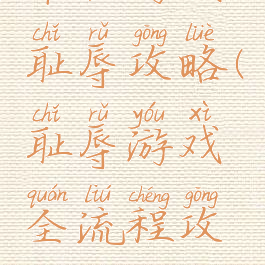 chǐ rǔ gōng lüè
耻辱攻略(
chǐ rǔ yóu xì
耻辱游戏
quán liú chéng gōng
全流程攻